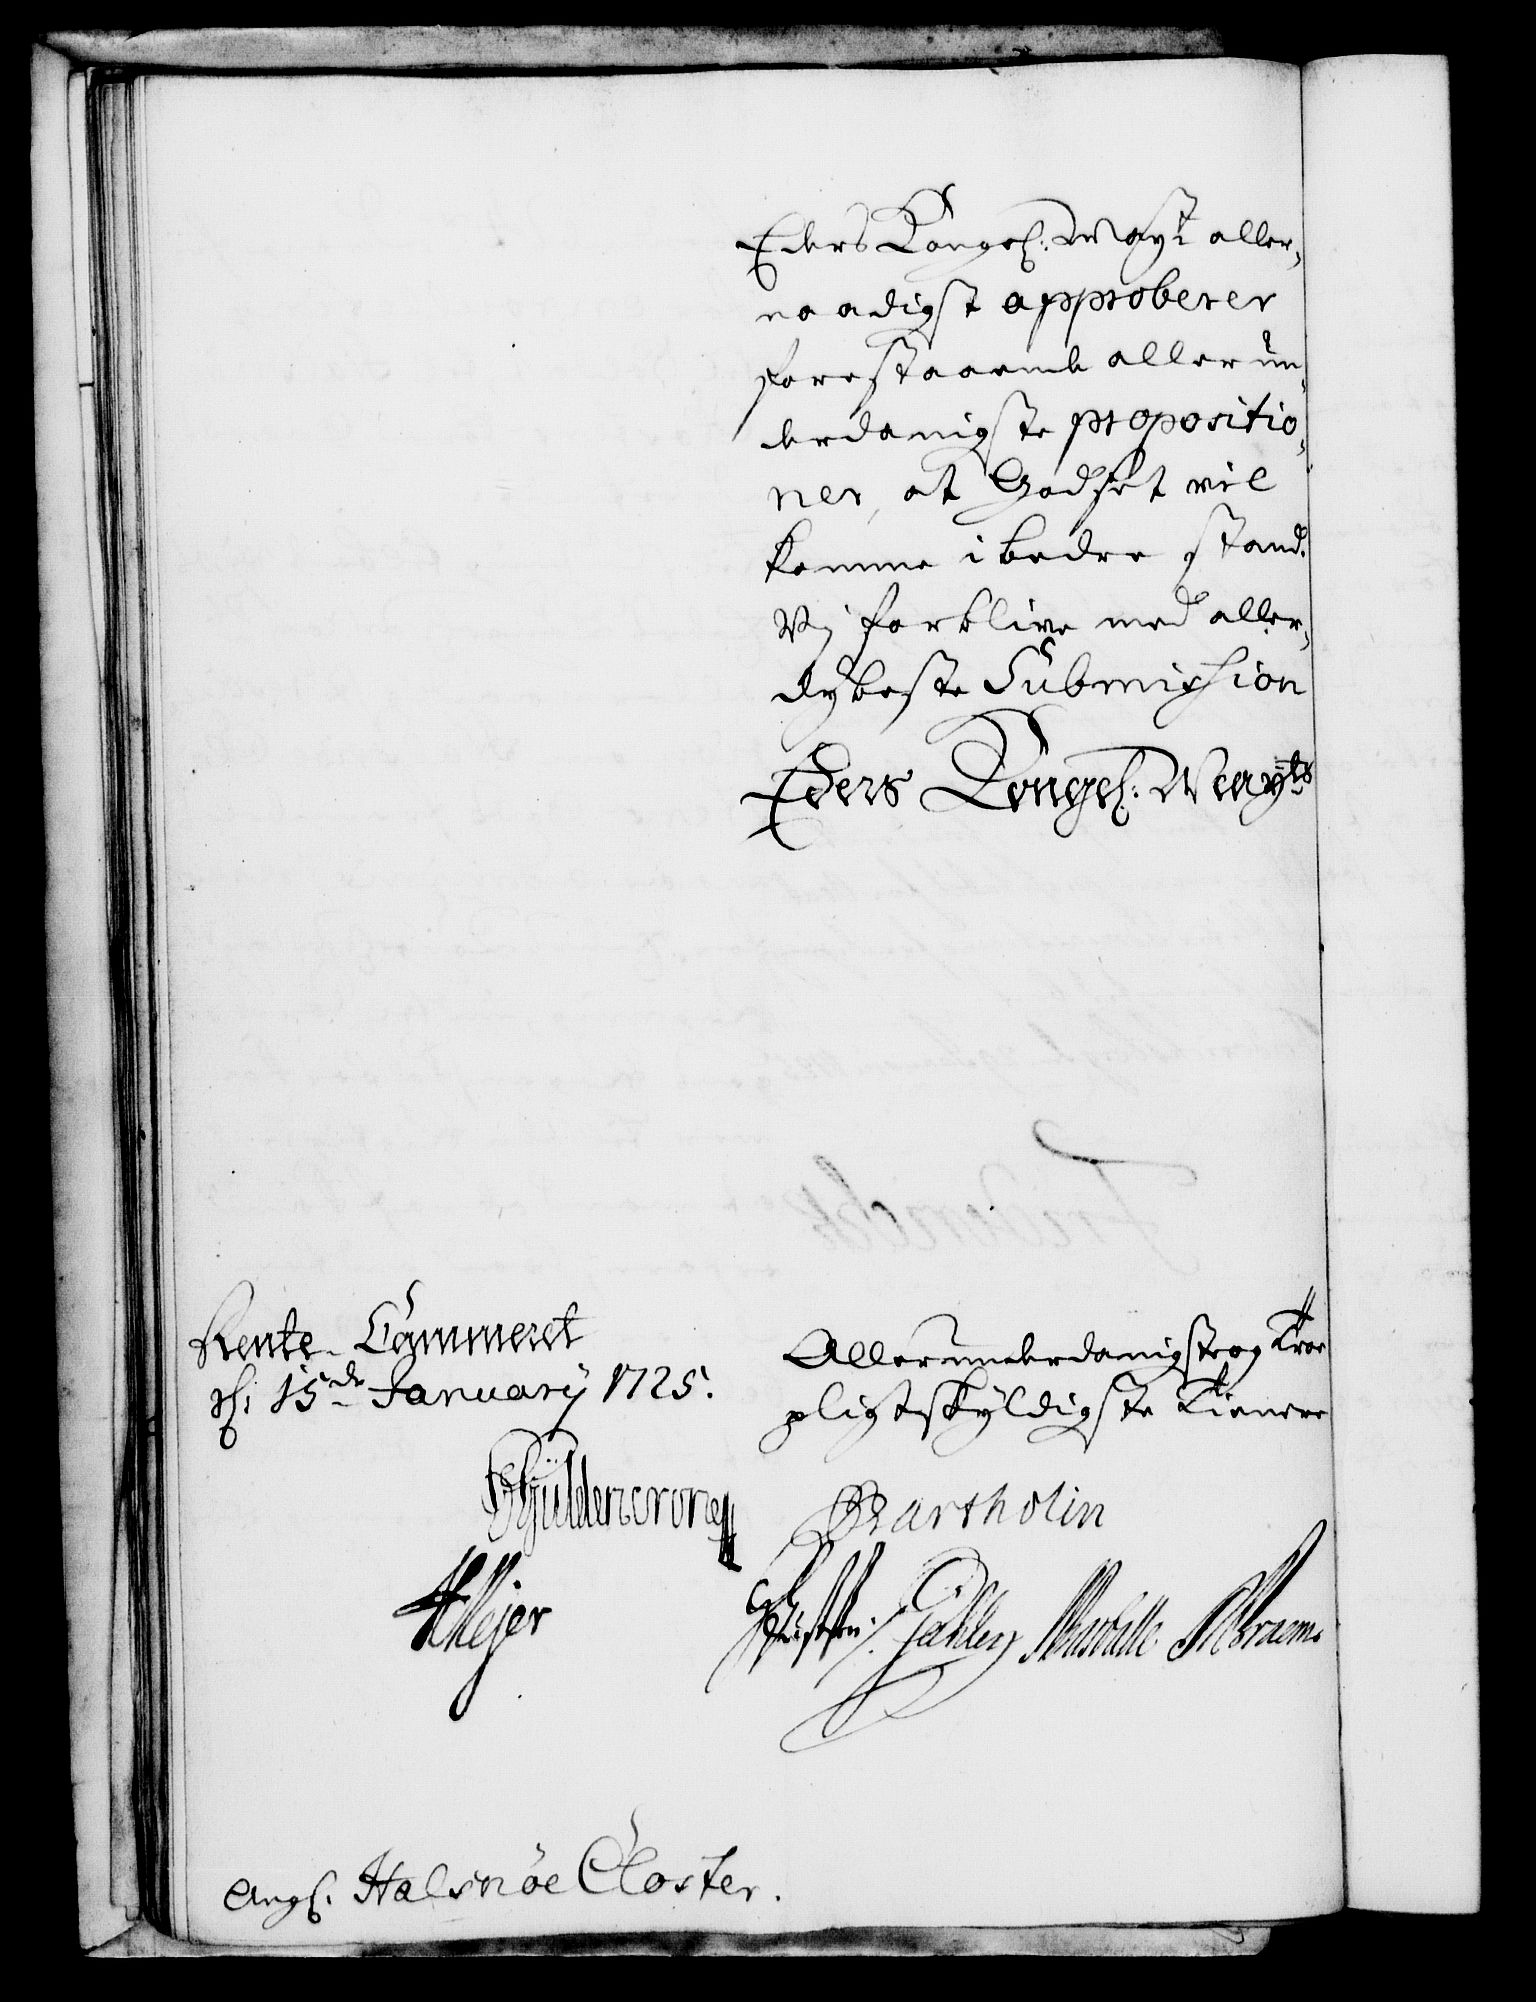 Eders Kongel: Mayt aller-
naadigst approberer
forestaaende allerun-
derdanigste propositio-
ner, at Godset vil
komme i bedre stand.
Vj forblive med aller-
dybeste Submission
Eders Kongel: Mayts
Rente-Cammeret
d: 15de January 1725.
Allerunderdanigste og Troe
pligtskyldigste Tienere
Güldencrone
Bartholin
Mejer
Gähler
Angl. Halsnöe Closter.